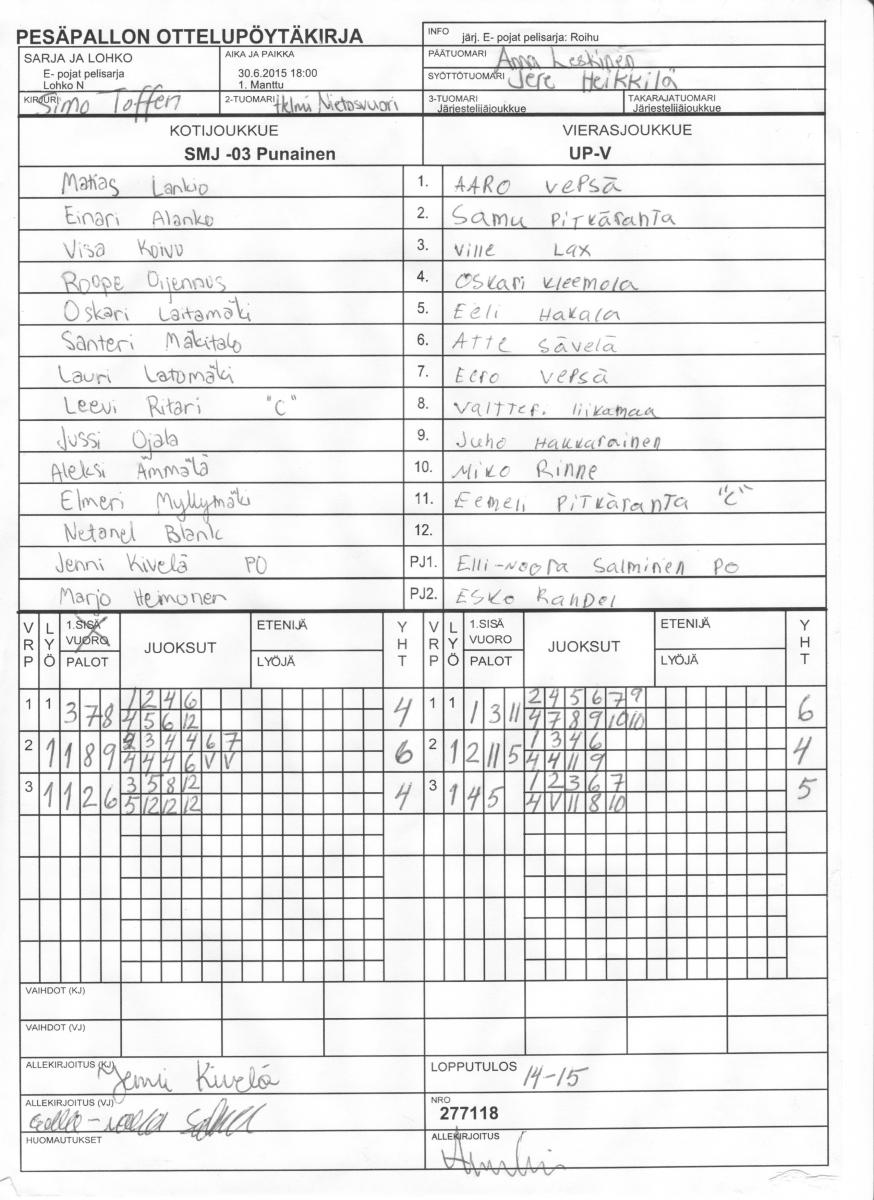 PESÄPALLON OTTELUPÖYTÄKIRJA
INFO järj. E- pojat pelisarja: Roihu
SARJA JA LOHKO
E- pojat pelisarja
Lohko N
AIKA JA PAIKKA
30.6.2015 18:00
1. Manttu
PÄÄTUOMARI Anna Leskinen
SYÖTTÖTUOMARI Jere Heikkilä
KIRJURI Simo Toffen
2-TUOMARI Helmi Nietosvuori
3-TUOMARI
Järjestelijäjoukkue
TAKARAJATUOMARI
Järjestelijäjoukkue
KOTIJOUKKUE VIERASJOUKKUE
SMJ -03 Punainen UP-V
Matias Lankio 1. AARO VEPSÄ
Einari Alanko 2. Samu PITKÄRANTA
Visa Koivu 3. Ville LAX
Roope 4. Oskari Kleemola
Oskari Laitamäki 5. Eeli Hakala
Santeri Mäkitalo 6. ATTE Sävelä
Lauri Latomäki 7. Eero VEPSÄ
Leevi Ritari "C" 8. Valtteri liikamaa
Jussi Ojala 9. Juho Hakkarainen
Aleksi Ämmälä 10. Miko Rinne
Elmeri Myllymäki 11. Eemeli PITKÄRANTA "C"
Netanel Blank 12.
Jenni Kivelä PO PJ1. Elli-Noora Salminen PO
Marjo Heimonen PJ2. ESKO Randel
VRP LYÖ 1.SISÄ VUORO PALOT JUOKSUT ETENIJÄ LYÖJÄ YHT VRP LYÖ 1.SISÄ VUORO PALOT JUOKSUT ETENIJÄ LYÖJÄ YHT
1 1 3 7 8 1 2 4 6 4 1 1 1 3 11 2 4 5 6 7 9 6
4 5 6 12 4 7 8 9 10 10
2 1 1 8 9 2 3 4 4 6 7 6 2 1 2 11 5 1 3 4 6 4
4 4 4 6 V V 4 4 11 9
3 1 1 2 6 3 5 8 12 4 3 1 4 5 1 2 3 6 7 5
5 12 12 12 4 V 11 8 10
VAIHDOT (KJ)
VAIHDOT (VJ)
ALLEKIRJOITUS (KJ) Jenni Kivelä
LOPPUTULOS 14-15
ALLEKIRJOITUS (VJ)
NRO
277118
HUOMAUTUKSET
ALLEKIRJOITUS